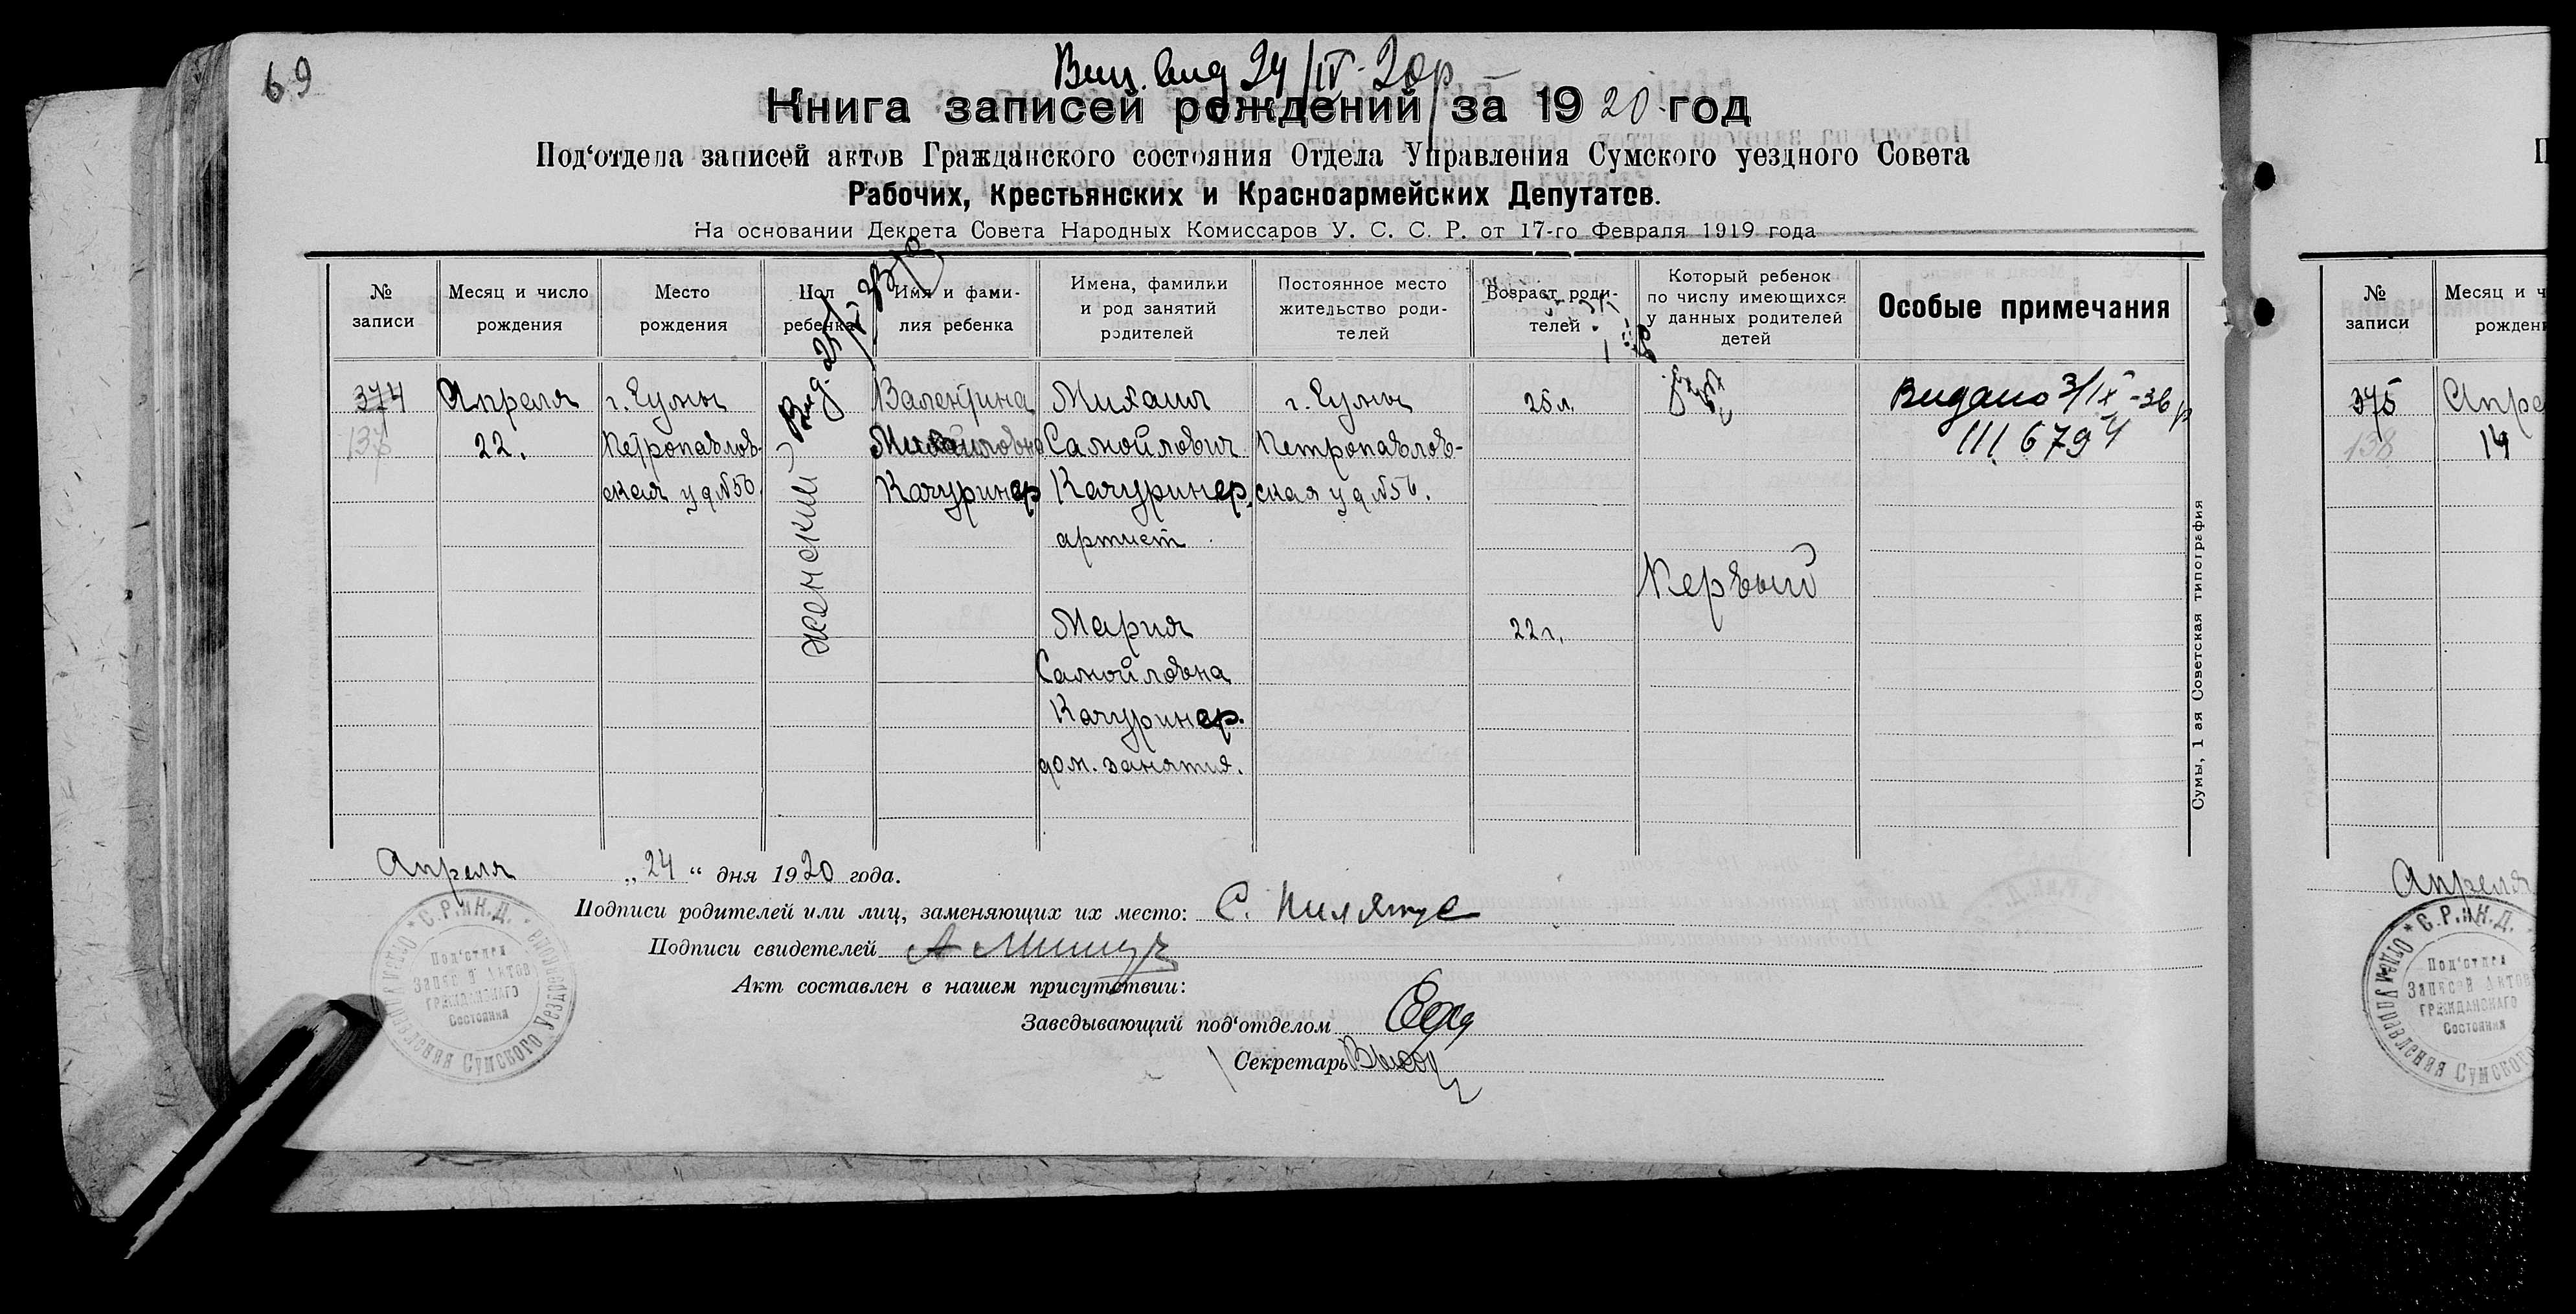 69
Вип. вид 24/IV-20р
Книга записей рождений за 1920 год
Под‘отдела записей актов Гражданского состояния Отдела Управления Сумского уездного Совета
Рабочих, Крестьянских и Красноармейских Депутатов.
На основании Декрета Совета Народных Комиссаров У. С. С. Р. от 17-го Февраля 1919 года
№ записи
Месяц и число рождения
Место рождения
Пол ребенка
Имя и фамилия ребенка
Имена, фамилии и род занятий родителей
Постоянное место жительство родителей
Возраст родителей
Который ребенок по числу имеющихся у данных родителей детей
Особые примечания
374
137
Апреля
22.
г. Сумы
Петропавлов-
ская ул №56
женский
Валентина
Михайловна
Качуринер
Михаил
Самойлович
Качуринер,
артист
Мария
Самойловна
Качуринер.
дом. занятия.
г. Сумы
Петропавлов-
ская ул №56.
25 л.
22 г.
Первый
Видано 3/IX-36 р
III 6794
Апреля „24“ дня 1920 года.
Подписи родителей или лиц, заменяющих их место: С.
Подписи свидетелей А
Акт составлен в нашем присутствии:
Заведывающий под‘отделом
Секретарь
С.Р. и К.Д.
Отдел Управления Сумского Уездисполкома
Под‘отдел
Записей Актов
Гражданскаго
Состояния
Сумы, 1 ая Советская типография
№ записи
Месяц и ч
рожден
375
138
Апре
14
Апреля
С.Р. и К.Д.
Отдел Управления Сумского
Под‘отдел
Записей Актов
Гражданскаго
Состояния